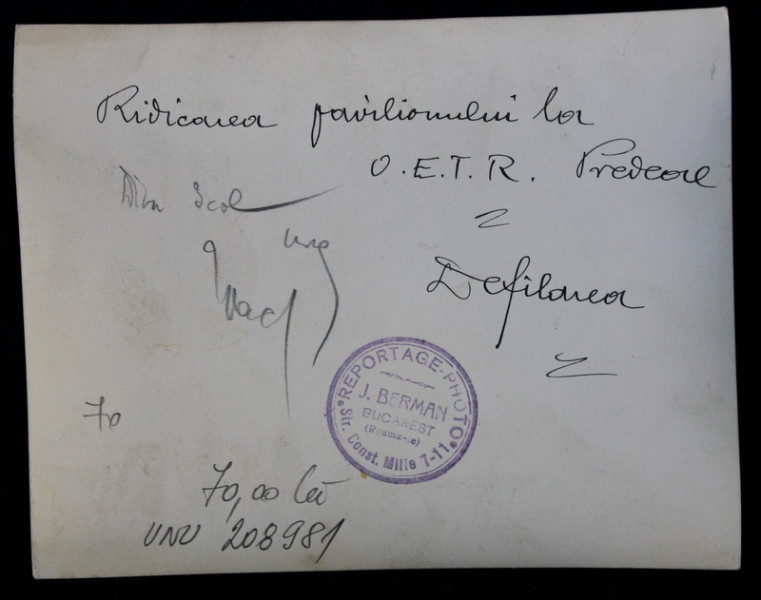 Ridicarea pavilionului la
O.E.T.R. Predeal
Defilarea
REPORTAGE-PHOTO
J. BERMAN
BUCAREST
(Roumanie)
Str. Const. Mille 7-11
70
70,00 lei
208981